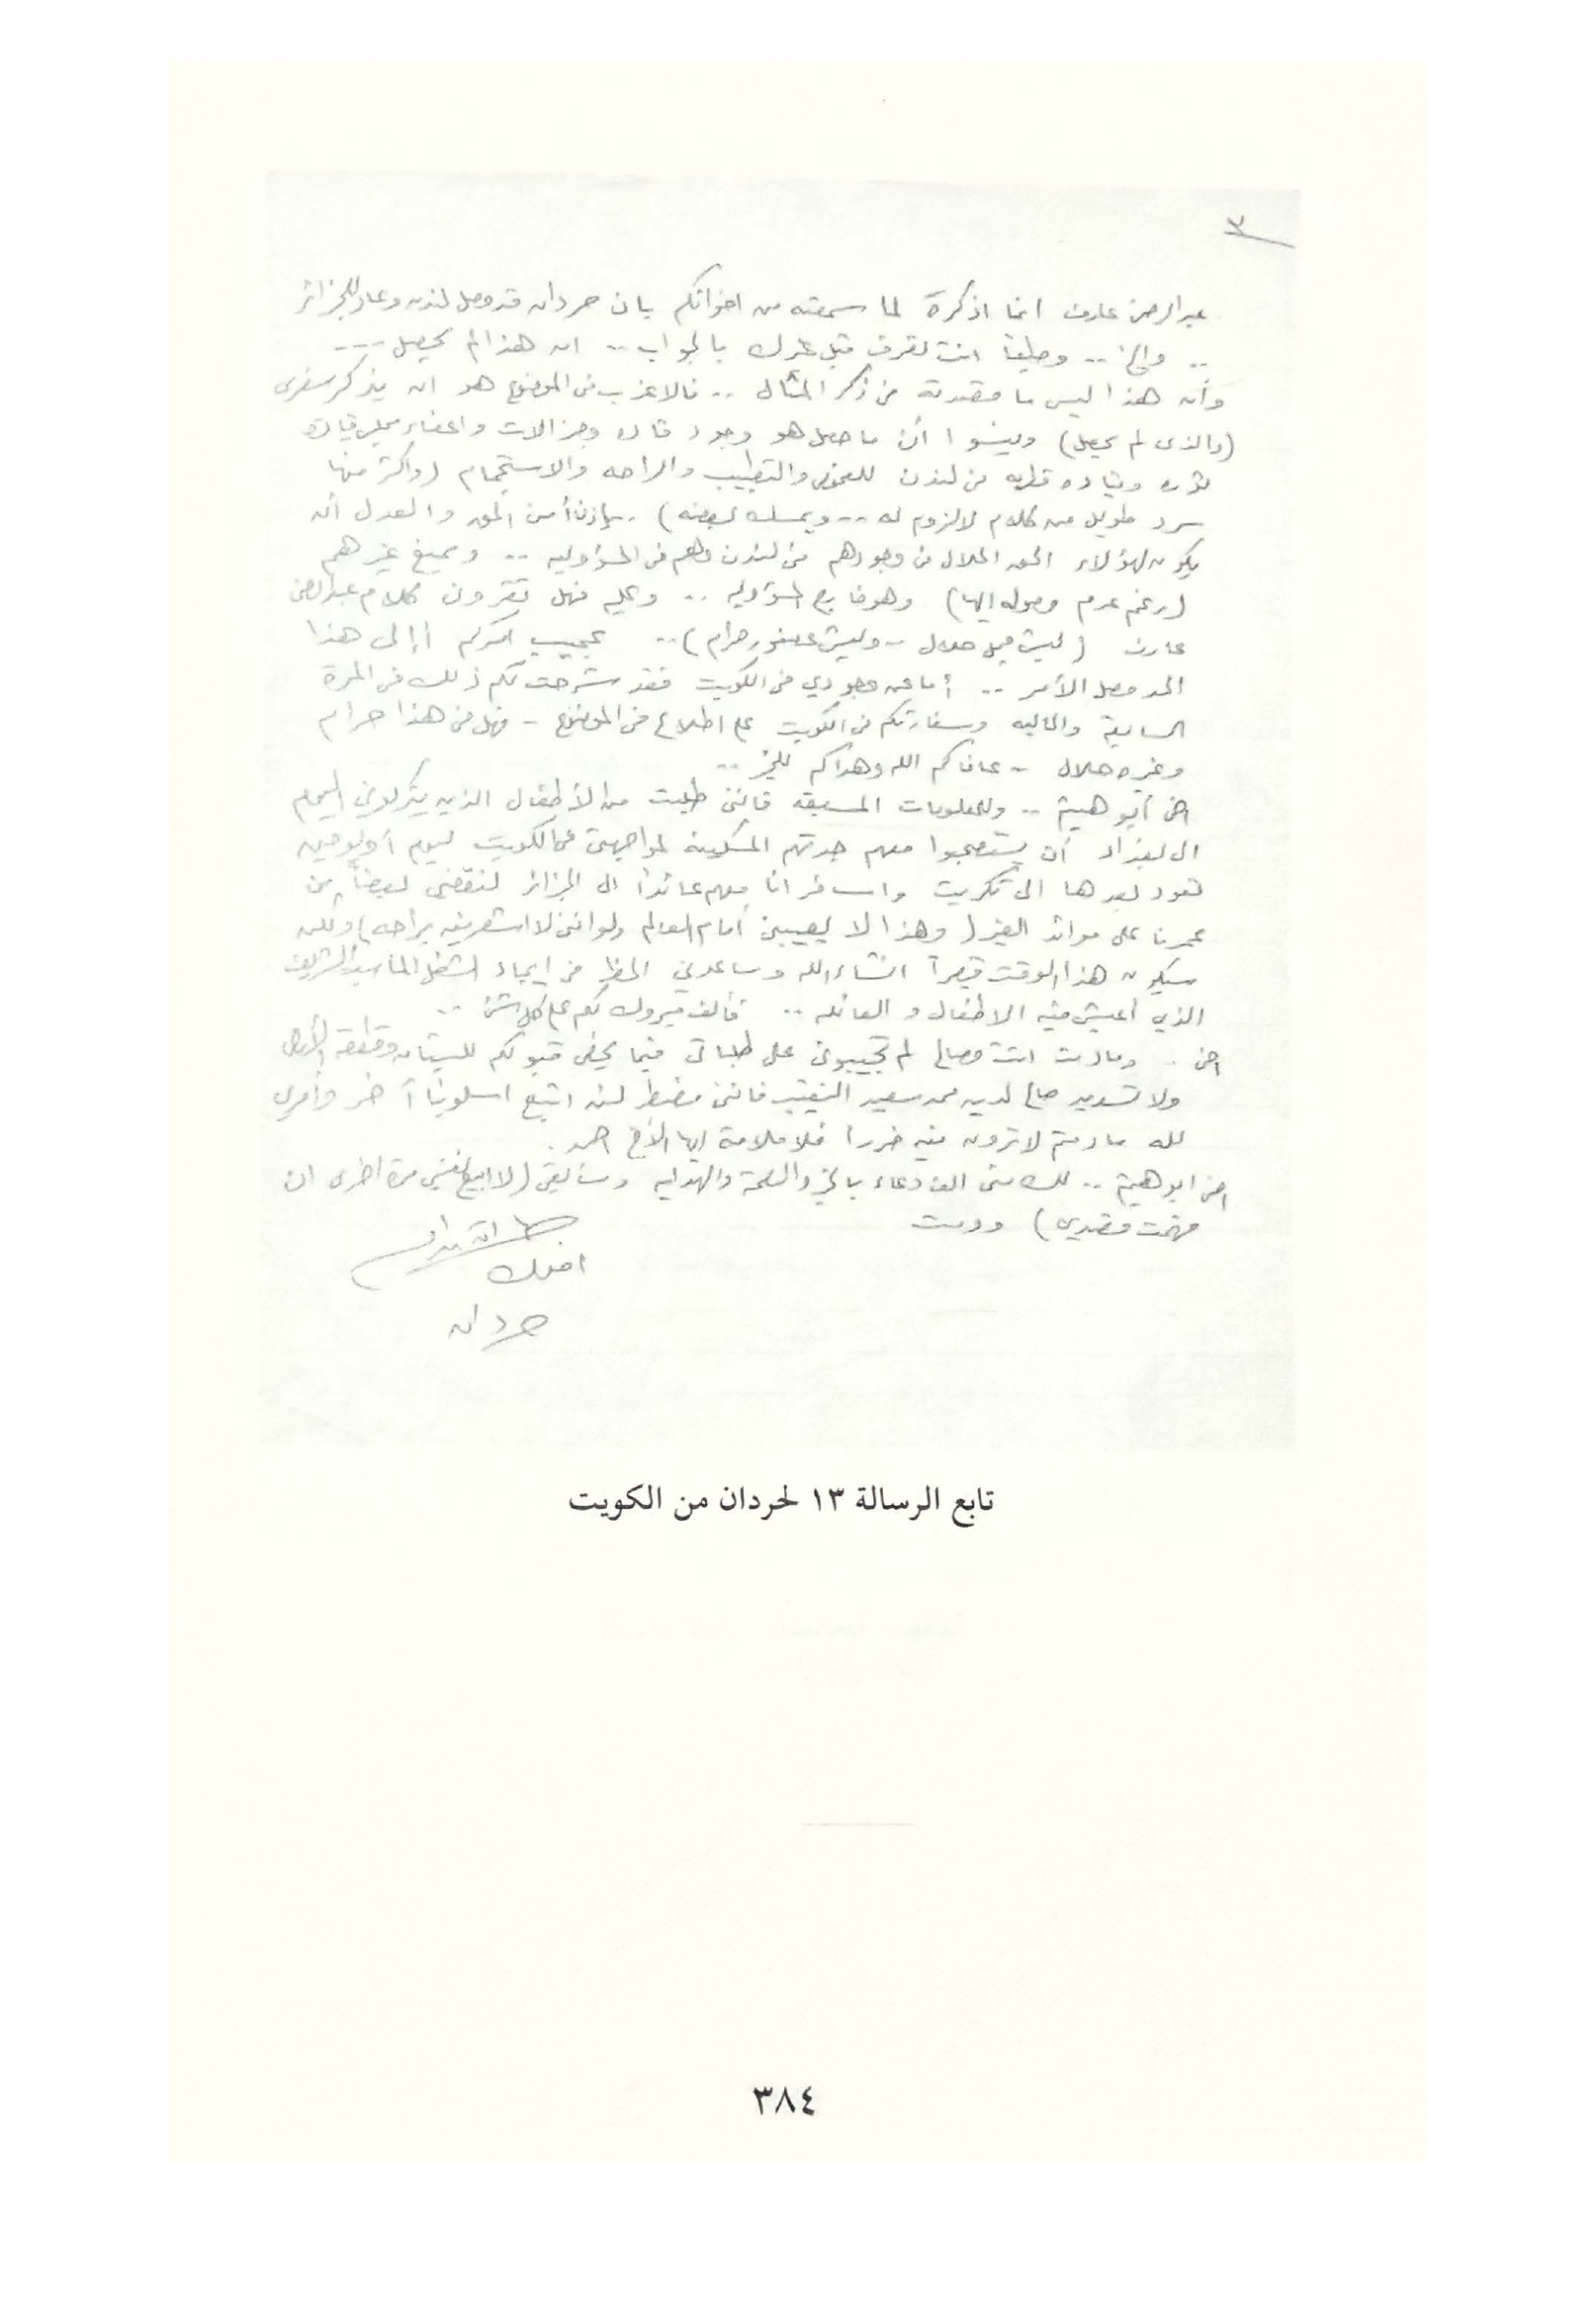 ٣
عبدالرحمن عارف انما اذكره لما سمعته من اخوانكم بان حردان قد وصل لندن وعاد للجزائر
.. والخ .. وطبعاً انت تعرف قبل غيرك بالجواب .. ان هذا لم يحصل ...
وأن هذا ليس ما قصدته من ذكر المثال .. فالاغرب في الموضوع هو ان يذكر سفري
(والذي لم يحصل) وينسوا أن ما حصل هو وجود قاده وجنرالات واعضاء مجلس قيادة
ثوره وقياده قطريه في لندن للفحوص والتطبيب والراحه والاستجمام (واكثر منها
سرد طويل من كلام لا لزوم له ..) .. بإذن أمن الحق والعدل أن
يكون لهؤلاء الحق الحلال في وجودهم في لندن وهم في المسؤوليه .. غيرهم
(رغم عدم وصوله إليها) وهو خارج المسؤوليه .. وعليه فهل تقرون كلام عبدالرحمن
عارف (ليش حلال - وليش عصفور حرام) .. عجيب امركم أإلى هذا
الحد وصل الأمر .. أما عن وجودي في الكويت فقد شرحت لكم ذلك في المرة
السابقة والحاليه وسفارتكم في الكويت على اطلاع في الموضوع - فهل في هذا حرام
وغيره حلال - عافاكم الله وهداكم للخير ..
اخي أبو هيثم .. وللمعلومات المسبقه فانني طلبت من الأطفال الذين يتركوني اليوم
الى بغداد أن يستصحبوا معهم جدتهم المسكينه لمواجهتي في الكويت ليوم أو يومين
تعود بعدها الى تكريت واسافر انا معهم عائداً الى الجزائر لنقضي بعضاً من
عمرنا على موائد الغير (وهذا لا يعيبني أمام العالم ولو انني لا استعرضه براحه) ولكن
سيكون هذا الوقت قصيراً انشاءالله وساعدني الحظ في ايجاد الشغل المناسب والشريف
الذي أعيش فيه الاطفال والعائله .. فألف مبروك لكم على كل شئ ..
اخي .. ومادمت انت وصالح لم تجيبوني على طلباتي فيما يخص قبولكم للبستان وقطعة الأرض
ولا تسديد صالح لدين محمد سعيد النقيب فانني مضطر لان اتبع اسلوباً آخر وأمري
لله مادمتم لا ترون فيه ضرراً فلا ملامة ايها الأخ احمد.
اخي ابو هيثم .. لك مني الف دعاء بالخير والصحة والهدايه وسأبقى (لا ابيع نفسي مرة اخرى ان
فهمت قصدي) ودمت
اخوك
حردان
تابع الرسالة ١٣ لحردان من الكويت
٣٨٤